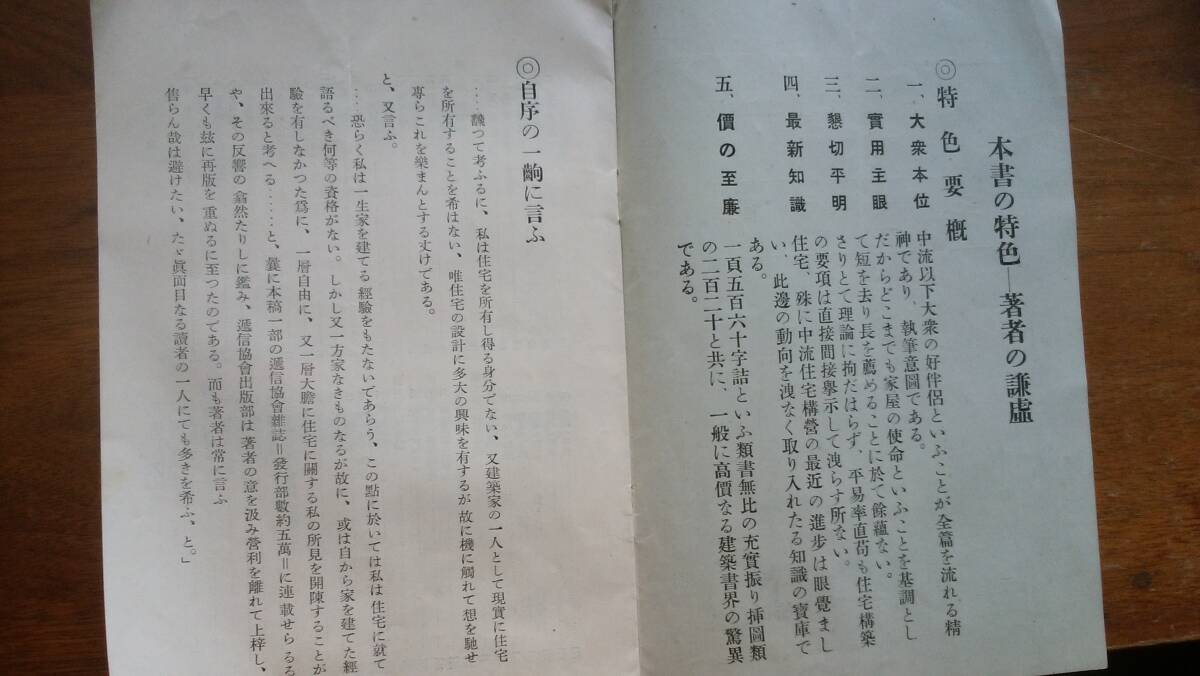 本書の特色―著者の謙虛
◎特色要槪
一、大衆本位
中流以下大衆の好伴侶といふことが全篇を流れる精
神であり、執筆意圖である。
二、實用主眼
だからどこまでも家屋の使命といふことを基調とし
て短を去り長を薦めることに於て餘蘊ない。
三、懇切平明
さりとて理論に拘だはらず、平易率直苟も住宅構築
の要項は直接間接擧示して洩らす所ない。
四、最新知識
住宅、殊に中流住宅構營の最近の進步は眼覺まし
い、此邊の動向を洩なく取り入れたる知識の寶庫で
ある。
五、價の至廉
一頁五百六十字詰といふ類書無比の充實振り揷圖類
の二百二十と共に、一般に高價なる建築書界の驚異
である。
◎自序の一齣に言ふ
…飜つて考ふるに、私は住宅を所有し得る身分でない、又建築家の一人として現實に住宅
を所有することを希はない、唯住宅の設計に多大の興味を有するが故に機に觸れて想を馳せ
專らこれを樂まんとする丈けである。
と、又言ふ。
…恐らく私は一生家を建てる經驗をもたないであらう、この點に於いては私は住宅に就て
語るべき何等の資格がない。しかし又一方家なきものなるが故に、或は自から家を建てた經
驗を有しなかつた爲に、一層自由に、又一層大膽に住宅に關する私の所見を開陳することが
出來ると考へる……と、曩に本稿一部の遞信協會雜誌=發行部數約五萬=に連載せらるる
や、その反響の翕然たりしに鑑み、遞信協會出版部は著者の意を汲み營利を離れて上梓し、
早くも玆に再版を重ぬるに至つたのである。而も著者は常に言ふ
售らん哉は避けたい、たゞ眞面目なる讀者の一人にても多きを希ふ、と。」